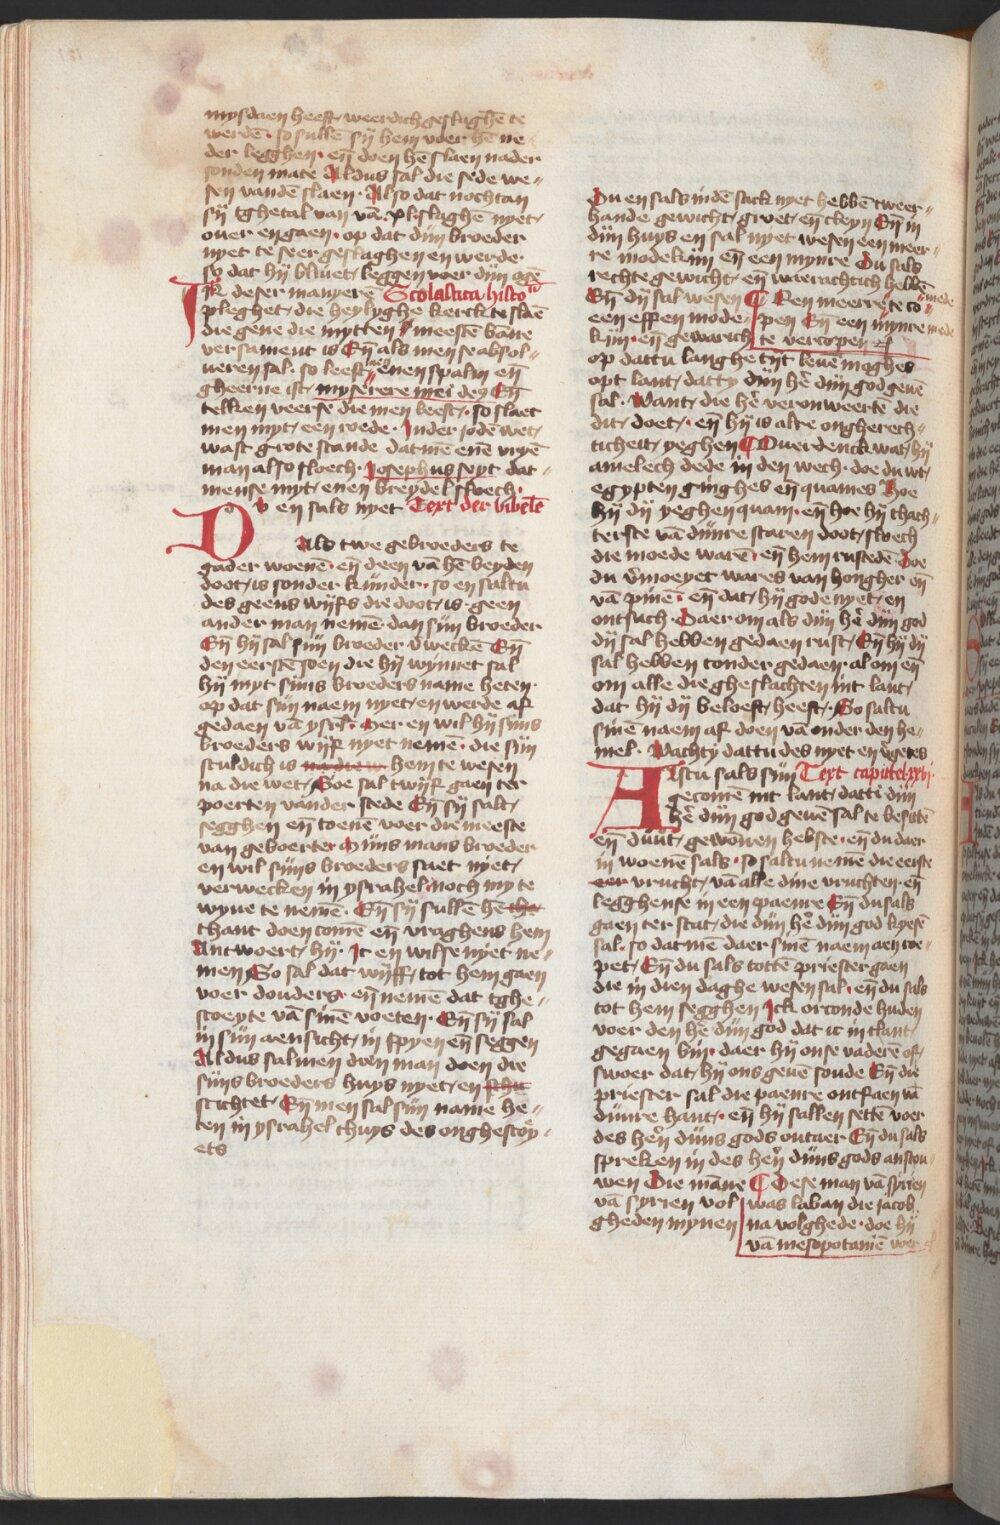 mysdaen heeft weerdich geslaghē te
werdē · so sullē sy hem voer hē ne
der legghen · eñ doen hē slaen nader
sonden mate Aldus sal die sede we„
sen vandē slaen · Also dat nochtan
sy tghetal van vā · xl slaghē nyet
ouer en gaen · op dat dijn broeder
nyet te seer geslaghen en werde ·
so dat hij bliuet leggen voer dijn ogē
In deser manyerē Scolastica histo
pleghet die heylyghe kerck te slaē
die gene die mytten meestē bāne
versament is Eñ als men se absol„
ueren sal · so leest enen spalm eñ
gheerne ist myserere mei deꝰ Eñ
telken veerse die men leest · so slaet
men myt een roede · In der jodē wet
wast grote scande datmē enē vryē
man also sloech · Josephus seyt dat„
mense myt enen breydel sloech ·
DV en sals nyet Text der bibelē
Als twe gebroeders te
gader woenē · eñ deen vā hē beyden
doot is sonder kinder · so en saltu
des geens wijfs die doot is geen
ander man nemē · dan sijn broeder
Eñ hij sal sijn broeder v̄weckē Eñ
den eerstē soen die hij wynnet sal
hij myt sijns broeders name heten ·
op dat sijn naem nyet en werde af
gedaen vā ysrl̄ · Mer en wil hij sijns
broeders wijf nyet nemē · die sijn
sculdich is na die w hem te wesen
na die wet Soe sal twijf gaen ter
poerten vander stede Eñ sy salt
segghen eñ toenē voer die meeste
van geboerte Mijns mans broeder
en wil sijns broeders saet nyet
verwecken in ysrahel noch my te
wyue te nemē · Eñ sy sullē hē the
thant doen comē eñ vraghens hem
Antwoert hij · Ic en wilse nyet ne„
men So sal dat wijff tot hem gaen
voer douders · eñ nemē dat tghe„
scoeyte vā sinē voeten · Eñ sy sal
in sijn aensicht in spyen eñ seggen
Aldus salmen dien man doen die
sijns broeders huys nyet en schu
stichtet Eñ men sal sijn name he„
ten in ysrahel thuys des onghescoy„
ets
Du en sals in dē sack nyet hebbē tweer„
hande gewicht groet eñ cleyn Eñ in
dijn huys en sal nyet wesen een meer„
re modekijn eñ een mynre Du sals
rechte gewicht eñ waerachtich hebbē
Eñ dy sal wesen ¶ Een meerre te co„ mede
een effen mode„ pen Eñ een mynre mede
kijn · eñ gewarich te vercopen
op dattu langhe tijt leuē moghes
opt lant datty dijn hē dijn god geuē
sal · Want die hē veronweertē die
dit doet · eñ hij is alre ongherech„
ticheit yeghen ¶ Ouerdenck wat hij
amelech dede in den wech · doe du wt
egypten ginghes eñ quames Hoe
hij dij yeghen quam · eñ hoe hij thach„
terste vā dijnre scaren doot sloech
die moede warē · eñ hem rustedē · Doe
du v̄moeyet wares van hongher eñ
vā pinē · eñ dat hij gode nyet en
ontsach · Daer om als dijn hē dijn god
dij sal hebben gedaen rust Eñ hij dij
sal hebben tonder gedaen al om eñ
om alle die gheslachten int lant
dat hij dij beloeft heeft · So saltu
sinē naem af doen vā onder den he„
mel · Wachty dattu des nyet en v̄getes
Alstu sals sijn Text capittel xxvi
gecomē int lant datti dijn
hē dijn god geuē sal te besittē
eñ dujt gewonen hebste · eñ du daer
in woenē sals · so saltu nemē die eerste
eer vrucht vā alle dine vruchten · eñ
legghense in een paenre Eñ du sals
gaen ter stat die dijn hē dijn god kyesē
sal · so datmē daer sinē naem aen roe„
pet Eñ du sals tottē priester gaen
die in dien daghe wesen sal · eñ du sals
tot hem segghen Ick orconde huden
voer den hē dijn god dat ic in tlant
gegaen bin · daer hij onse vaderē of
swoer dat hij ons geuē soude Eñ die
priester sal die paenre ontfaen vā
dijnre hant · eñ hij sallen settē voer
des hen dijns gods outaer Eñ du sals
spreken in des hen dijns gods anscou„
wen Die māne ¶ Dese man vā syrien
vā syrien vol was laban die jacob
gheden mynen na volghede · doe hij
vā mesopotamiē voer